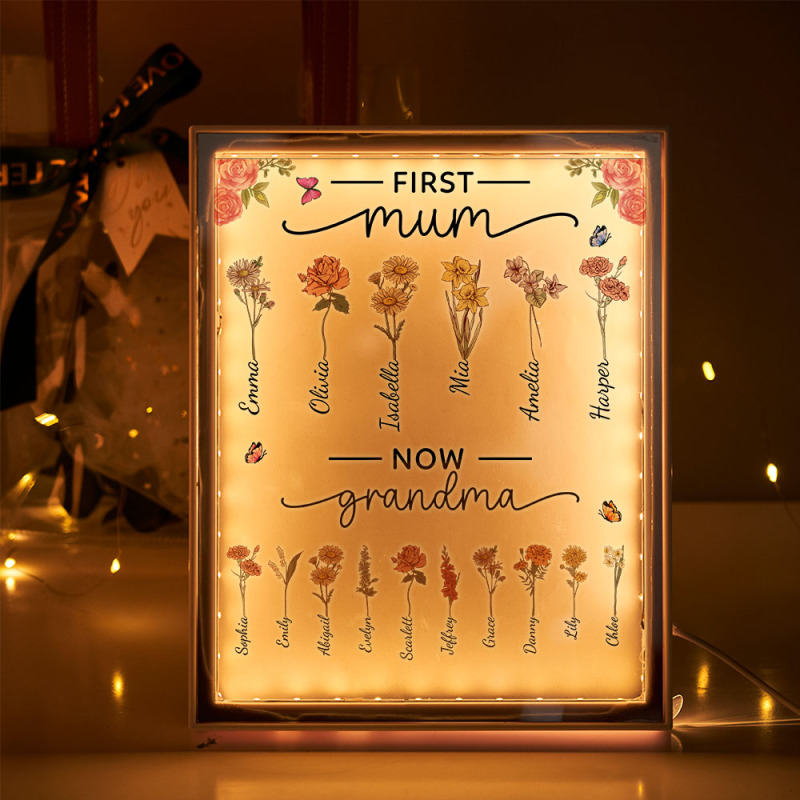 FIRST
mum
Emma Olivia Isabella Mia Amelia Harper
NOW
grandma
Sophia Emily Abigail Evelyn Scarlett Jeffrey Grace Danny Lily Chloe
you